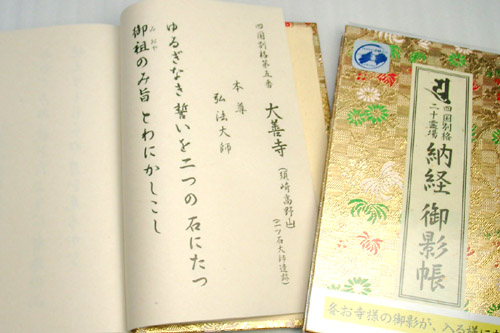 四国別格第五番 大善寺(須崎高野山)二ツ石大師遺跡)
本尊 弘法大師
ゆるぎなき誓いを二つの石にたつ
御祖のみ旨とわにかしこし
みおや
四国別格
二十霊場
納経 御影帳
各お寺様の御影が、入る様に